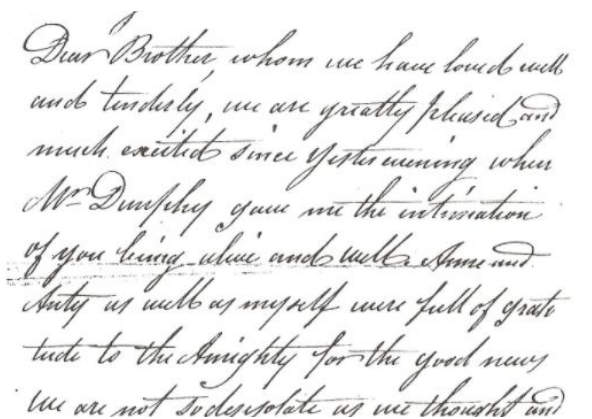 Dear Brother, whom we have loved well
and tenderly, we are greatly pleased and
much excited since yesterevening when
Mr Dunphy gave me the intimation
of you being alive and well. Anne and
Anty as well as myself were full of grati
tude to the Amighty for the good news
we are not so desesolate as we thought and